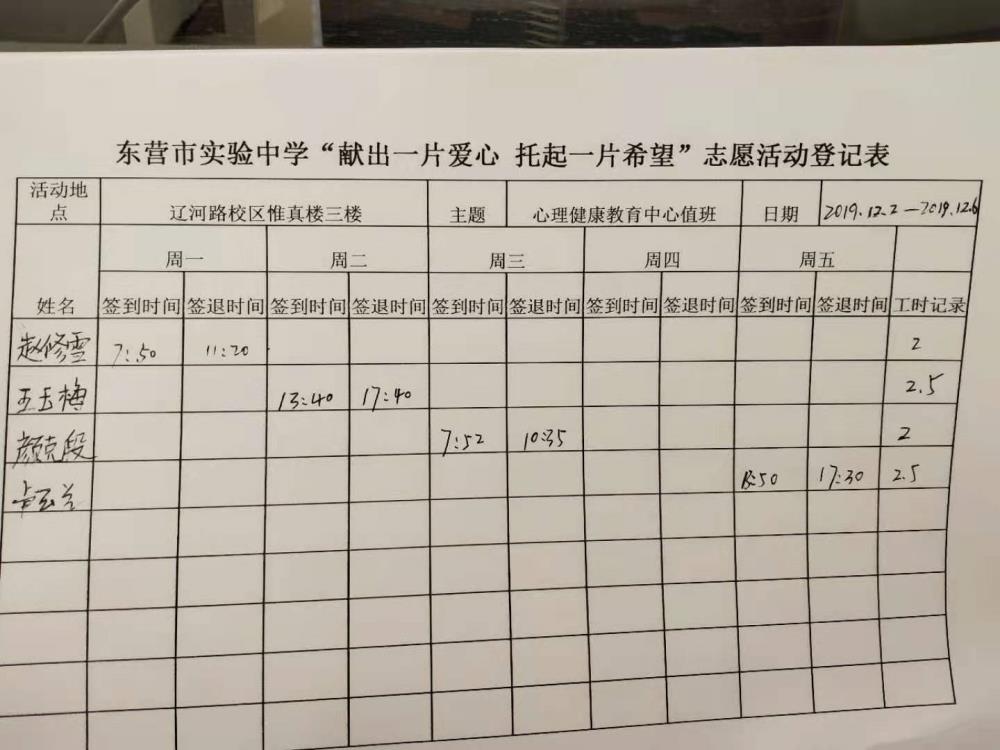 东营市实验中学“献出一片爱心 托起一片希望”志愿活动登记表
活动地点 辽河路校区惟真楼三楼 主题 心理健康教育中心值班 日期 2019.12.2—2019.12.6
姓名 周一 周二 周三 周四 周五
签到时间 签退时间 签到时间 签退时间 签到时间 签退时间 签到时间 签退时间 签到时间 签退时间 工时记录
赵修雪 7:50 11:20 2
王玉梅 13:40 17:40 2.5
颜克段 7:52 10:35 2
17:30 2.5